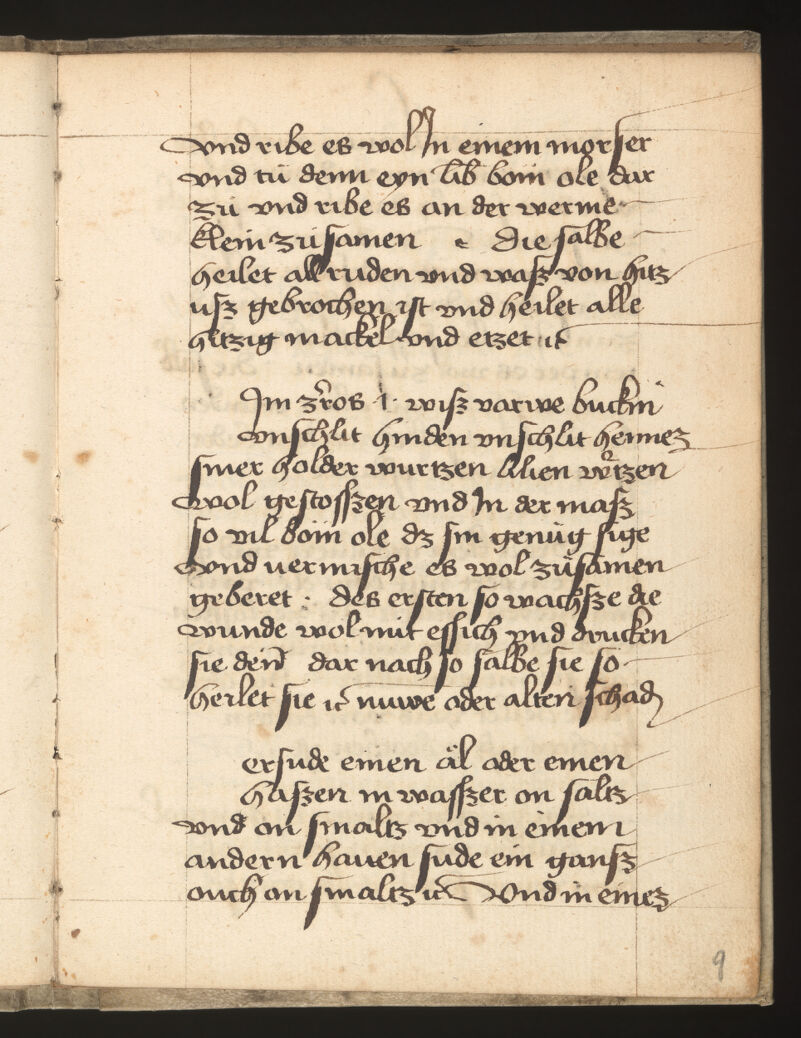 vnd ribe es wol In einem morser
vnd tů denn eyn lib bom ole dar
zů vnd ribe es an der werme
klein zůsamen Die salbe
heilet all ruden vnd wasz von hitz
usz gebrochen ist vnd heilet alle
hitzig mackel vnd etzet ꝛc
Im zros .1. wisz varwe buckin
vnschlit hinden vnschlit hennez
smer holder wurtzen lilien wrtzen
wol gestosszen vnd In der masz
so vil bom ole dz sin genůg sige
vnd uermische es wol zůsamen
geberet . des ersten so wachsze die
wunde wol mit essich vnd drucken
sie den̄ dar nach so salbe sie so
heilet sie ꝛc nuwe oder alten schad
ersude einen äl oder einen
haszen in wasszer on saltz
vnd on smaltz vnd in einem
andern hauen sude ein gansz
ouch on smaltz ꝛc Vnd in einez
9